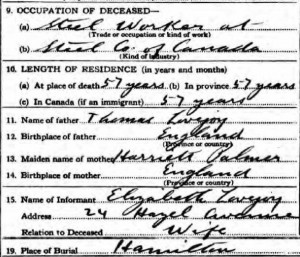 9. OCCUPATION OF DECEASED—
(a) Steel Worker at
(Trade or occupation or kind of work)
(b) Steel Co. of Canada
(Kind of industry)
10. LENGTH OF RESIDENCE (in years and months)
(a) At place of death 57 years (b) In province 57 years
(c) In Canada (if an immigrant) 57 years
11. Name of father Thomas Lovejoy
12. Birthplace of father England
(Province or country)
13. Maiden name of mother Harriett Palmer
14. Birthplace of mother England
(Province or country)
15. Name of Informant Elizabeth Lovejoy
Address 24 Hazel Avenue
Relation to Deceased Wife
19. Place of Burial Hamilton